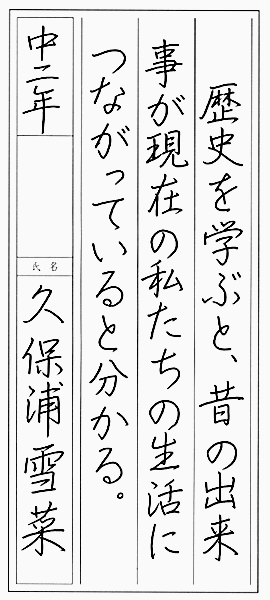 歴史を学ぶと、昔の出来
事が現在の私たちの生活に
つながっていると分かる。
中二年
氏名
久保浦雪菜